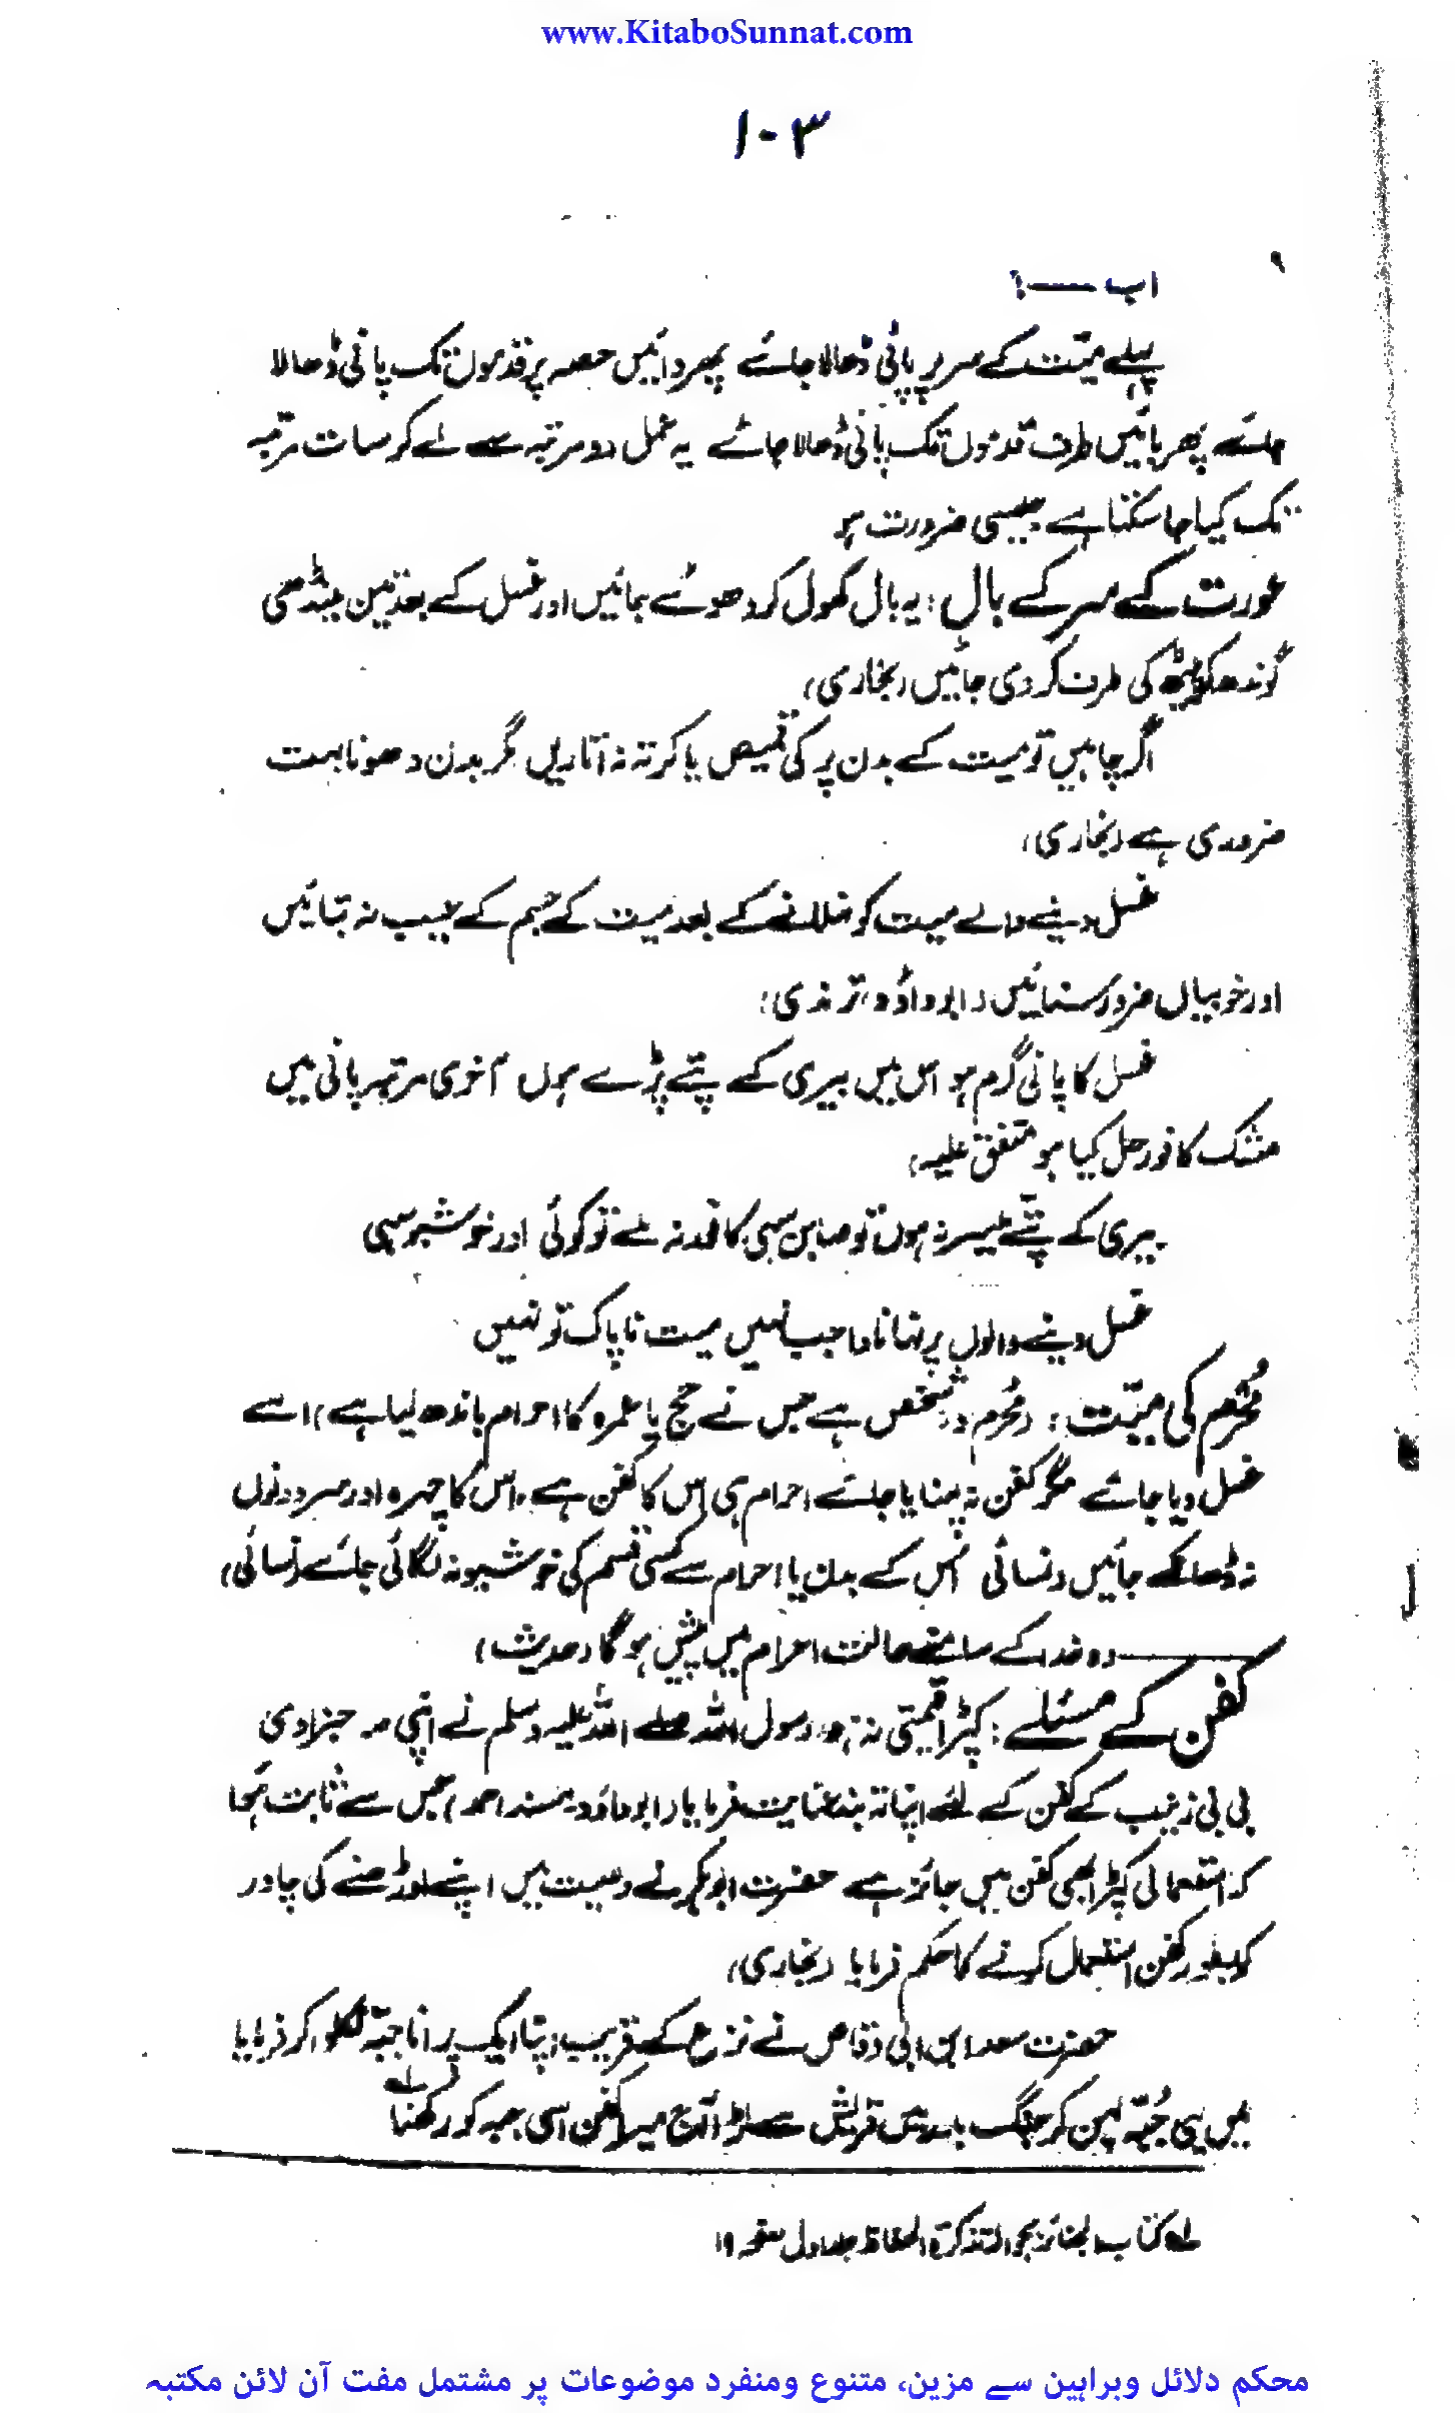 www.KitaboSunnat.com
۱۰۳
اب ——؟
پہلے میّت کے سر پر پانی ڈھالا جائے پھر دائیں حصہ پر قدموں تک پانی ڈھالا
جائے پھر بائیں طرف قدموں تک پانی ڈھالا جائے یہ عمل دو مرتبہ سے لے کر سات مرتبہ
تک کیا جا سکتا ہے جیسی ضرورت ہو
عورت کے سر کے بال : یہ بال کھول کر دھوئے جائیں اور غسل کے بعد تین مینڈھی
گوندھ کر پیٹھ کی طرف کر دی جائیں (بخاری)
اگر چاہیں تو میت کے بدن پر کی قمیص یا کرتہ نہ اتاریں مگر بدن دھونا بہت
ضروری ہے (بخاری)
غسل دینے والے میت کو نہلانے کے بعد میت کے جسم کے عیب نہ بتائیں
اور خوبیاں ضرور سنائیں (ابو داؤد، ترمذی)
غسل کا پانی گرم ہو اس میں بیری کے پتے پڑے ہوں آخری مرتبہ پانی میں
مشک کافور حل کیا ہو متفق علیہ)
بیری کے پتے میسر نہ ہوں تو صابن سہی کافور نہ ملے تو کوئی اور خوشبو سہی
غسل دینے والوں پر نہانا واجب نہیں میت ناپاک تو نہیں
مُحْرِم کی میّت : (مُحرِم وہ شخص ہے جس نے حج یا عمرہ کا احرام باندھ لیا ہے) اسے
غسل دیا جائے مگر کفن نہ پہنایا جائے احرام ہی اس کا کفن ہے، اس کا چہرہ اور سر دونوں
نہ ڈھانکے جائیں (نسائی) اُس کے بدن یا احرام سے کسی قسم کی خوشبو نہ لگائی جائے (نسائی)
—— وہ خدا کے سامنے حالت احرام میں پیش ہو گا (حدیث)
کفن کے مسئلے : کپڑا قیمتی نہ ہو، رسول اللہ صلے اللہ علیہ وسلم نے اپنی صاحبزادی
بی بی زینب کے کفن کے لئے اپنا تہ بند عنایت فرمایا (ابو داؤد، مسند احمد) جس سے ثابت ہُوا
کہ استعمالی کپڑا بھی کفن میں جائز ہے حضرت ابوبکر نے وصیت میں اپنے اوڑھنے کی چادر
کو بطور کفن استعمال کرنے کا حکم فرمایا (بخاری)
حضرت سعد ابن ابی وقاص نے نزع کے قریب اپنا ایک پرانا جبّہ نکلوا کر فرمایا
میں یہی جُبّہ پہن کر جنگ بدر میں قریش سے لڑا آج میرا کفن اسی جبہ کو رکھنا ۱؎
۱؎ کتاب الجنائز بحوالہ تذکرۃ الحفاظ جلد اول صفحہ ۱۹
محکم دلائل وبراہین سے مزین، متنوع ومنفرد موضوعات پر مشتمل مفت آن لائن مکتبہ